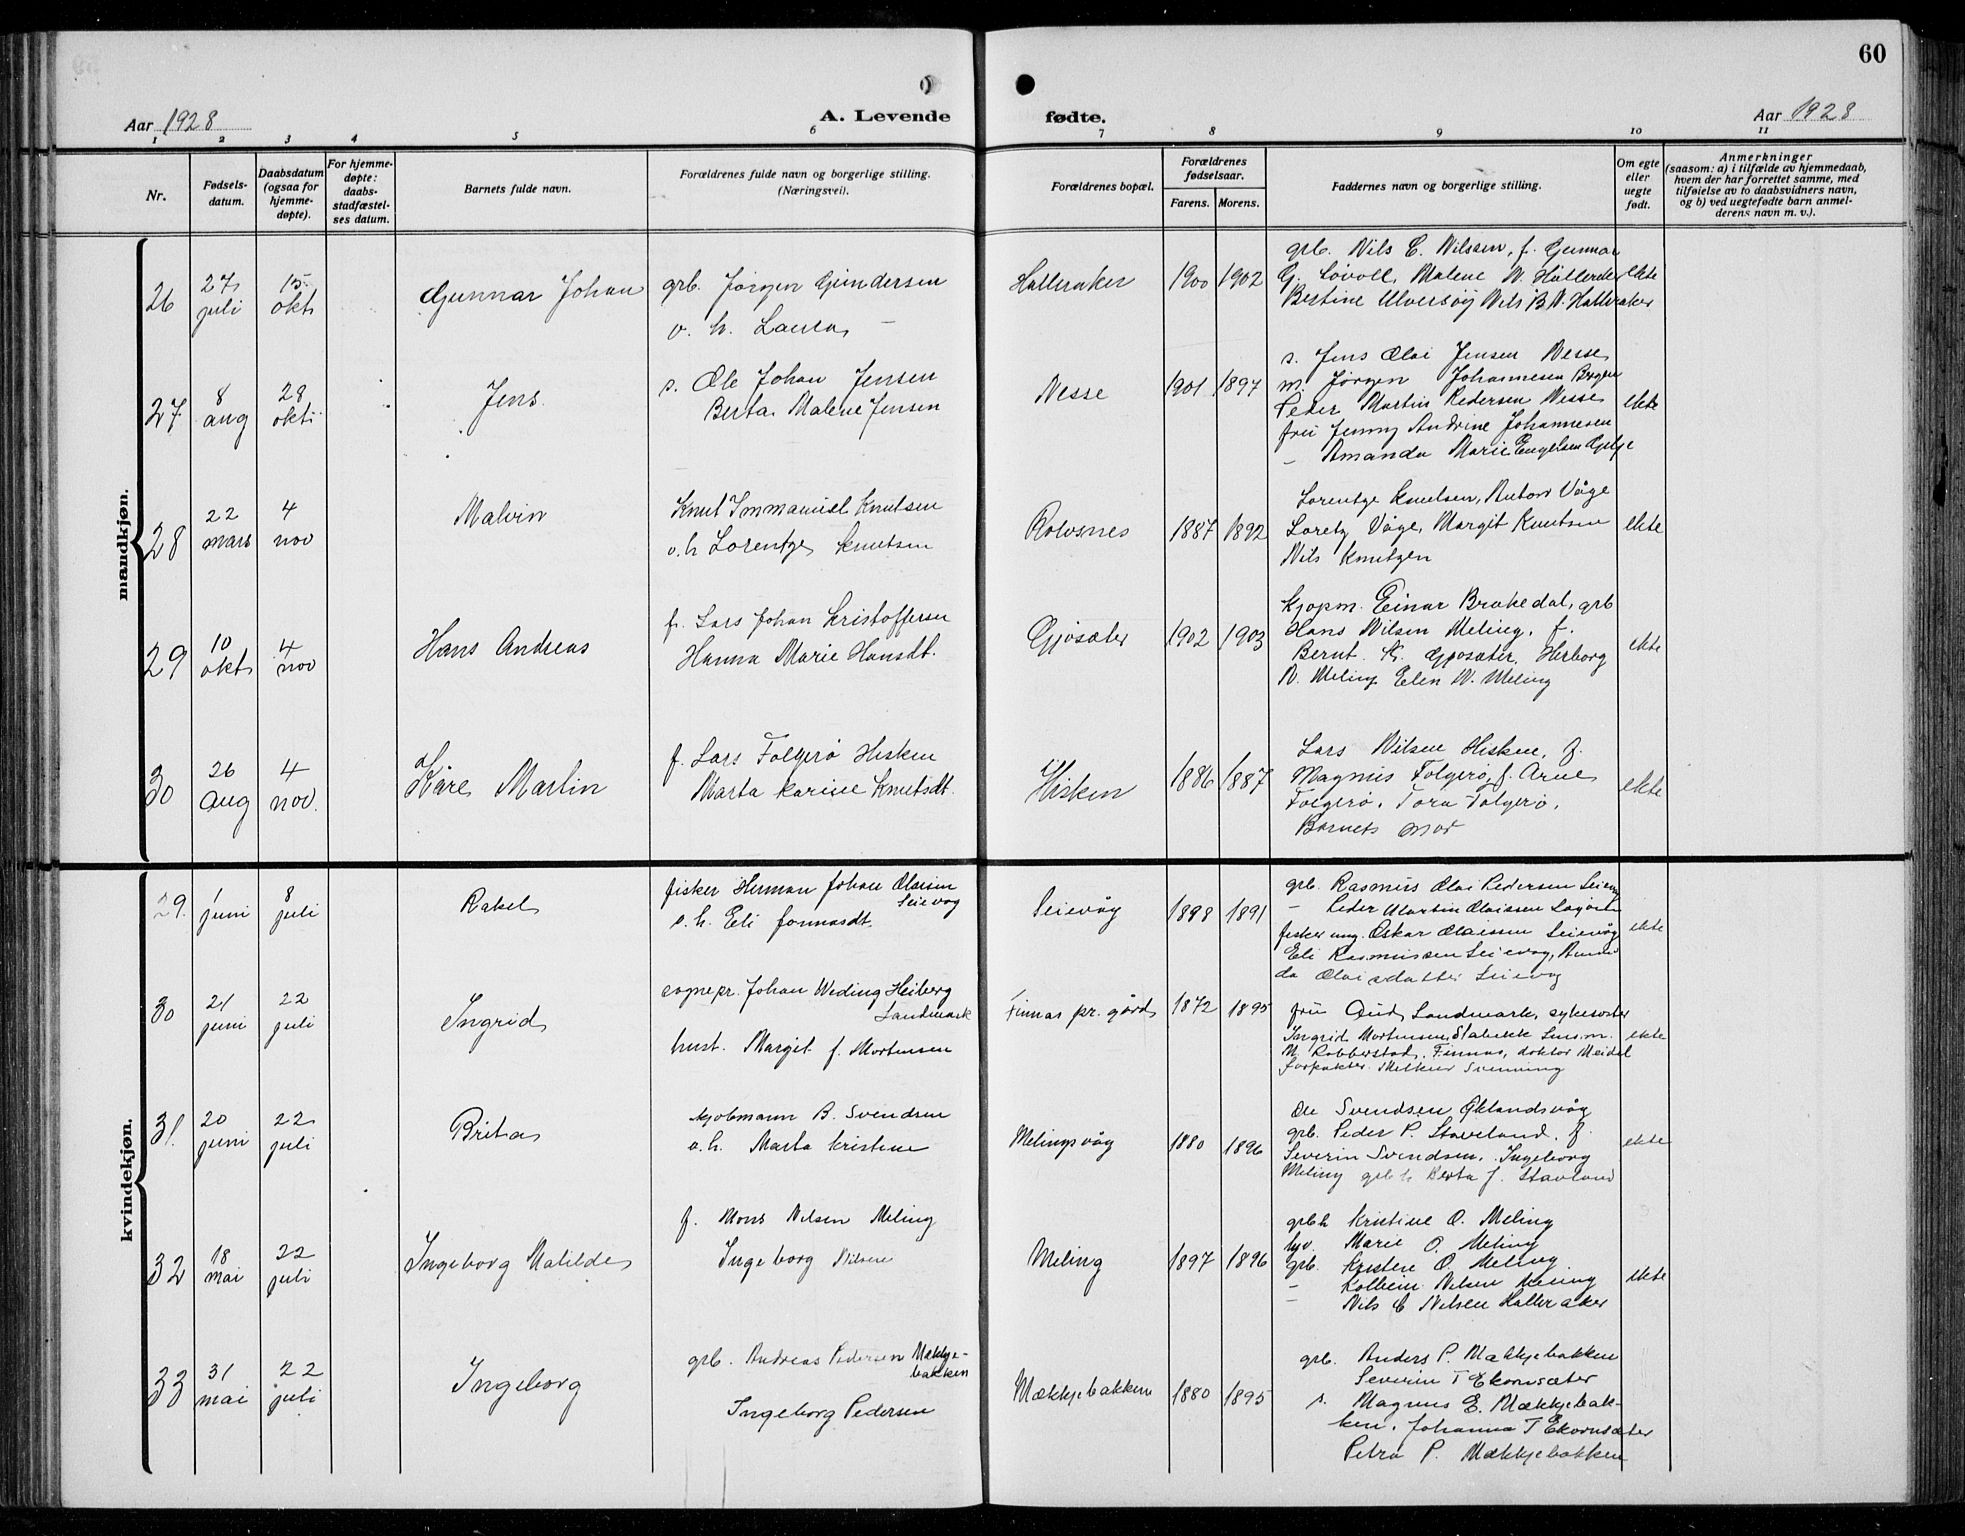 60
Aar 1928
A. Levende
fødte.
Aar 1928
1 2 3 4 5 6 7 8 9 10 11
Nr.
Fødsels-
datum.
Daabsdatum
(ogsaa for
hjemme-
døpte).
For hjemme-
døpte:
daabs-
stadfæstel-
ses datum.
Barnets fulde navn.
Forældrenes fulde navn og borgerlige stilling.
(Næringsvei).
Forældrenes bopæl.
Forældrenes
fødselsaar.
Farens. Morens.
Faddernes navn og borgerlige stilling.
Om egte
eller
uegte
født.
Anmerkninger
(saasom: a) i tilfælde av hjemmedaab,
hvem der har forrettet samme, med
tilføielse av to daabsvidners navn,
og b) ved uegtefødte barn anmel-
derens navn m. v.).
mandkjøn.
26
27
juli
15
okt
Gunnar Johan
grb. Jørgen Gundersen
o. h. Laura
Halleraker
1900 1902
grb. Nils C. Nilssen, f. Gunnar
G. Løvoll, Malene N. Halleraker
Bestine Ulversøy Nils B. N. Halleraker
ekte
27
8
aug
28
okt
Jens
s. Ole Johan Jensen
Berta Malene Jensen
Nesse
1901 1897
s. Jens Olai Jensen Nesse
m. Jørgen Johannesen Bergen
Peder Martin Pedersen Nesse
fru Jenny Andrine Johannesen
– Amanda Marie Engelsen
ekte
28
22
mars
4
nov
Malvin
Knut Immanuel Knutsen
o. h Lorentze Knutsen
Rolvsnes
1887 1892
Lorentze Knutsen, Anton Våge
Loretz Våge, Margit Knutsen
Nils Knutzen
ekte
29
10
okt
4
nov
Hans Andreas
f. Lars Johan Kristoffersen
Hanna Marie Hansdt.
Gjøsæter
1902 1903
kjøpm. Einar Brakedal, grb
Hans Nilsen Meling, f.
Bernt K. Gjøsæter, Herborg
N. Meling Elen N. Meling
ekte
30
26
aug
4
nov.
Kåre Martin
f. Lars Folgerø Hisken
Marta Karine Knutsdt.
Hisken
1886 1887
Lars Nilsen Hisken, f.
Magnus Folgerø, f. Arne
Folgerø, Tora Folgerø,
Barnets mor
ekte
kvindekjøn.
29.
1
juni
8
juli
Rakel
fisker Herman Johan Olaisen
Seievåg
o. h. Eli Jonnasdt.
Seievåg
1898 1891
grb. Rasmus Olai Pedersen Seievåg
– Peder Martin Olaissen
fisker ung. Oskar Olaissen Seievåg
Eli Rasmussen Seievåg, Aman
da Olaisdatter Seievåg
ekte
30
21
juni
22
juli
Ingrid
sognepr. Johan Weding Heiberg
Landmark
hust. Margit f. Mortensen
Finnas pr. gård
1872 1895
fru Aud Landmark, sykesøster
Ingrid Mortensen, Stabekk Lensm.
M. Robberstad, Finnas, doktor Meidel
forpakter Svenning
ekte
31.
20
juni
22
juli
Brita
kjøbmann B. Svendsen
o. h. Marta Kristine
Melingsvåg
1880 1896
Ole Svendsen Øklandsvåg
grb. Peder P. Stavland, f.
Severin Svendsen, Ingeborg
Meling grb h Berta f. Stavland
ekte
32
18
mai
22
juli
Ingeborg Matilde
f. Mons Nilsen Meling
Ingeborg Nilsen
Meling
1897 1896
grbh Kristine O. Meling
Marie O. Meling
grb. Kristen O. Meling
– Kolbein Nilsen Meling
– Nils C Nilsen Halleraker
ekte
33
31
mai
22
juli
Ingeborg
grb. Andreas Pedersen Mækkje-
bakken
Ingeborg Pedersen
Mækkjebakken
1880 1895
grb. Anders P. Mækkjebakken
Severin T Ekornsæter
s. Magnus E. Mækkjebak-
ken, Johanna T Ekornsæter
Petra P. Mækkjebakken